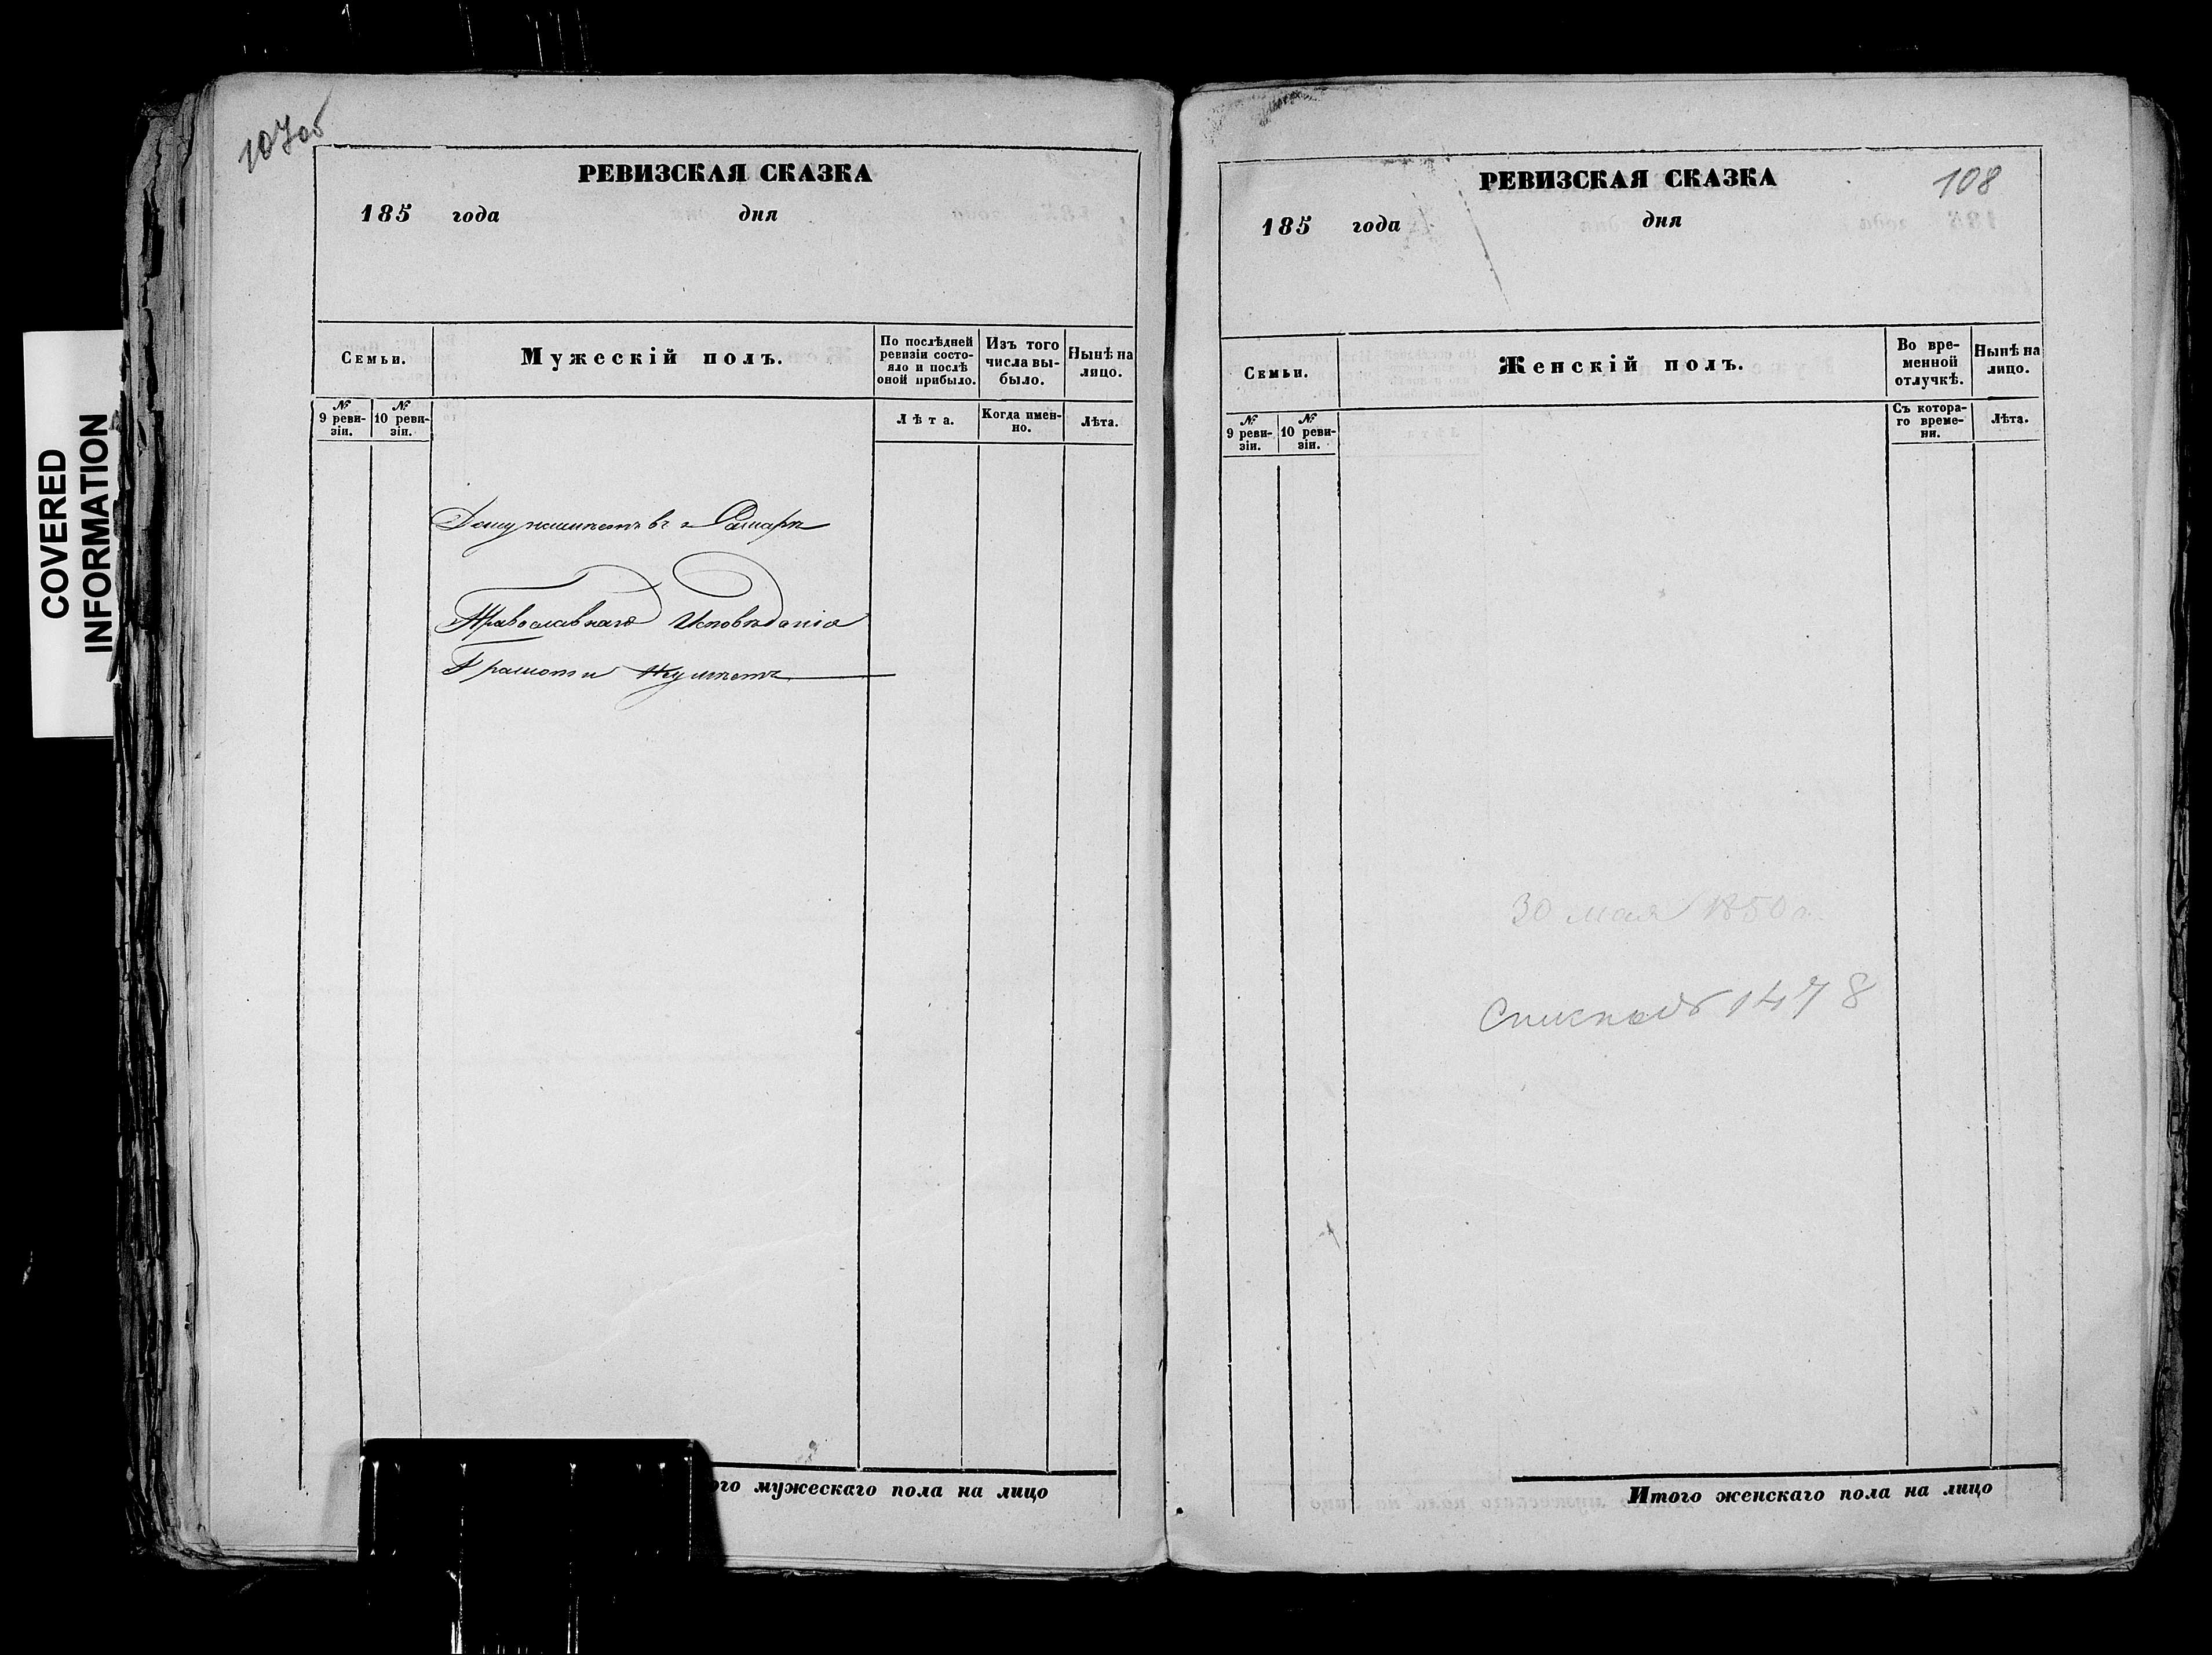 COVERED
INFORMATION
107об
РЕВИЗСКАЯ СКАЗКА
185 года дня
Семьи.
Мужескій полъ.
По послѣдней ревизіи состо-
яло и послѣ
оной прибыло.
Изъ того
числа вы-
было.
Нынѣ на
лицо.
№
9 реви-
зіи.
№
10 реви-
зіи.
Лѣта.
Когда имен-
но.
Лѣта.
Дому неимѣетъ въ г Самарѣ
Православнаго Исповѣданія
Грамоти Неумѣетъ
ого мужескаго пола на лицо
108
РЕВИЗСКАЯ СКАЗКА
185 года дня
Семьи.
Женскій полъ.
Во вре-
менной
отлучкѣ.
Нынѣ на
лицо.
№
9 реви-
зіи.
№
10 реви-
зіи.
Съ котора-
го време-
ни.
Лѣта.
30 мая 1850 г.
1478
Итого женскаго пола на лицо